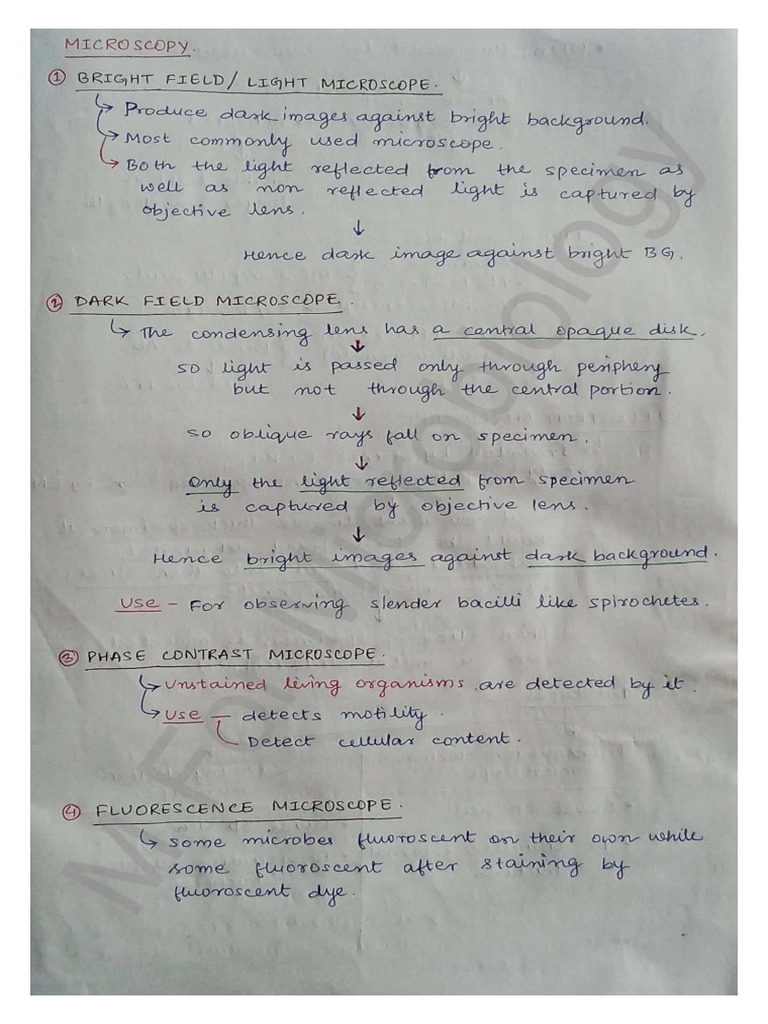 MICROSCOPY.
① BRIGHT FIELD / LIGHT MICROSCOPE.
↳ Produce dark images against bright background.
↳ Most commonly used microscope.
↳ Both the light reflected from the specimen as
well as non reflected light is captured by
objective lens.
↓
Hence dark image against bright BG.
② DARK FIELD MICROSCOPE.
↳ The condensing lens has a central opaque disk.
↓
so light is passed only through periphery
but not through the central portion.
↓
so oblique rays fall on specimen.
↓
Only the light reflected from specimen
is captured by objective lens.
↓
Hence bright images against dark background.
Use - For observing slender bacilli like spirochetes.
③ PHASE CONTRAST MICROSCOPE.
↳ Unstained living organisms are detected by it.
↳ Use — detects motility.
Detect cellular content.
④ FLUORESCENCE MICROSCOPE.
↳ some microbes fluoroscent on their own while
some fluoroscent after staining by
fluoroscent dye.